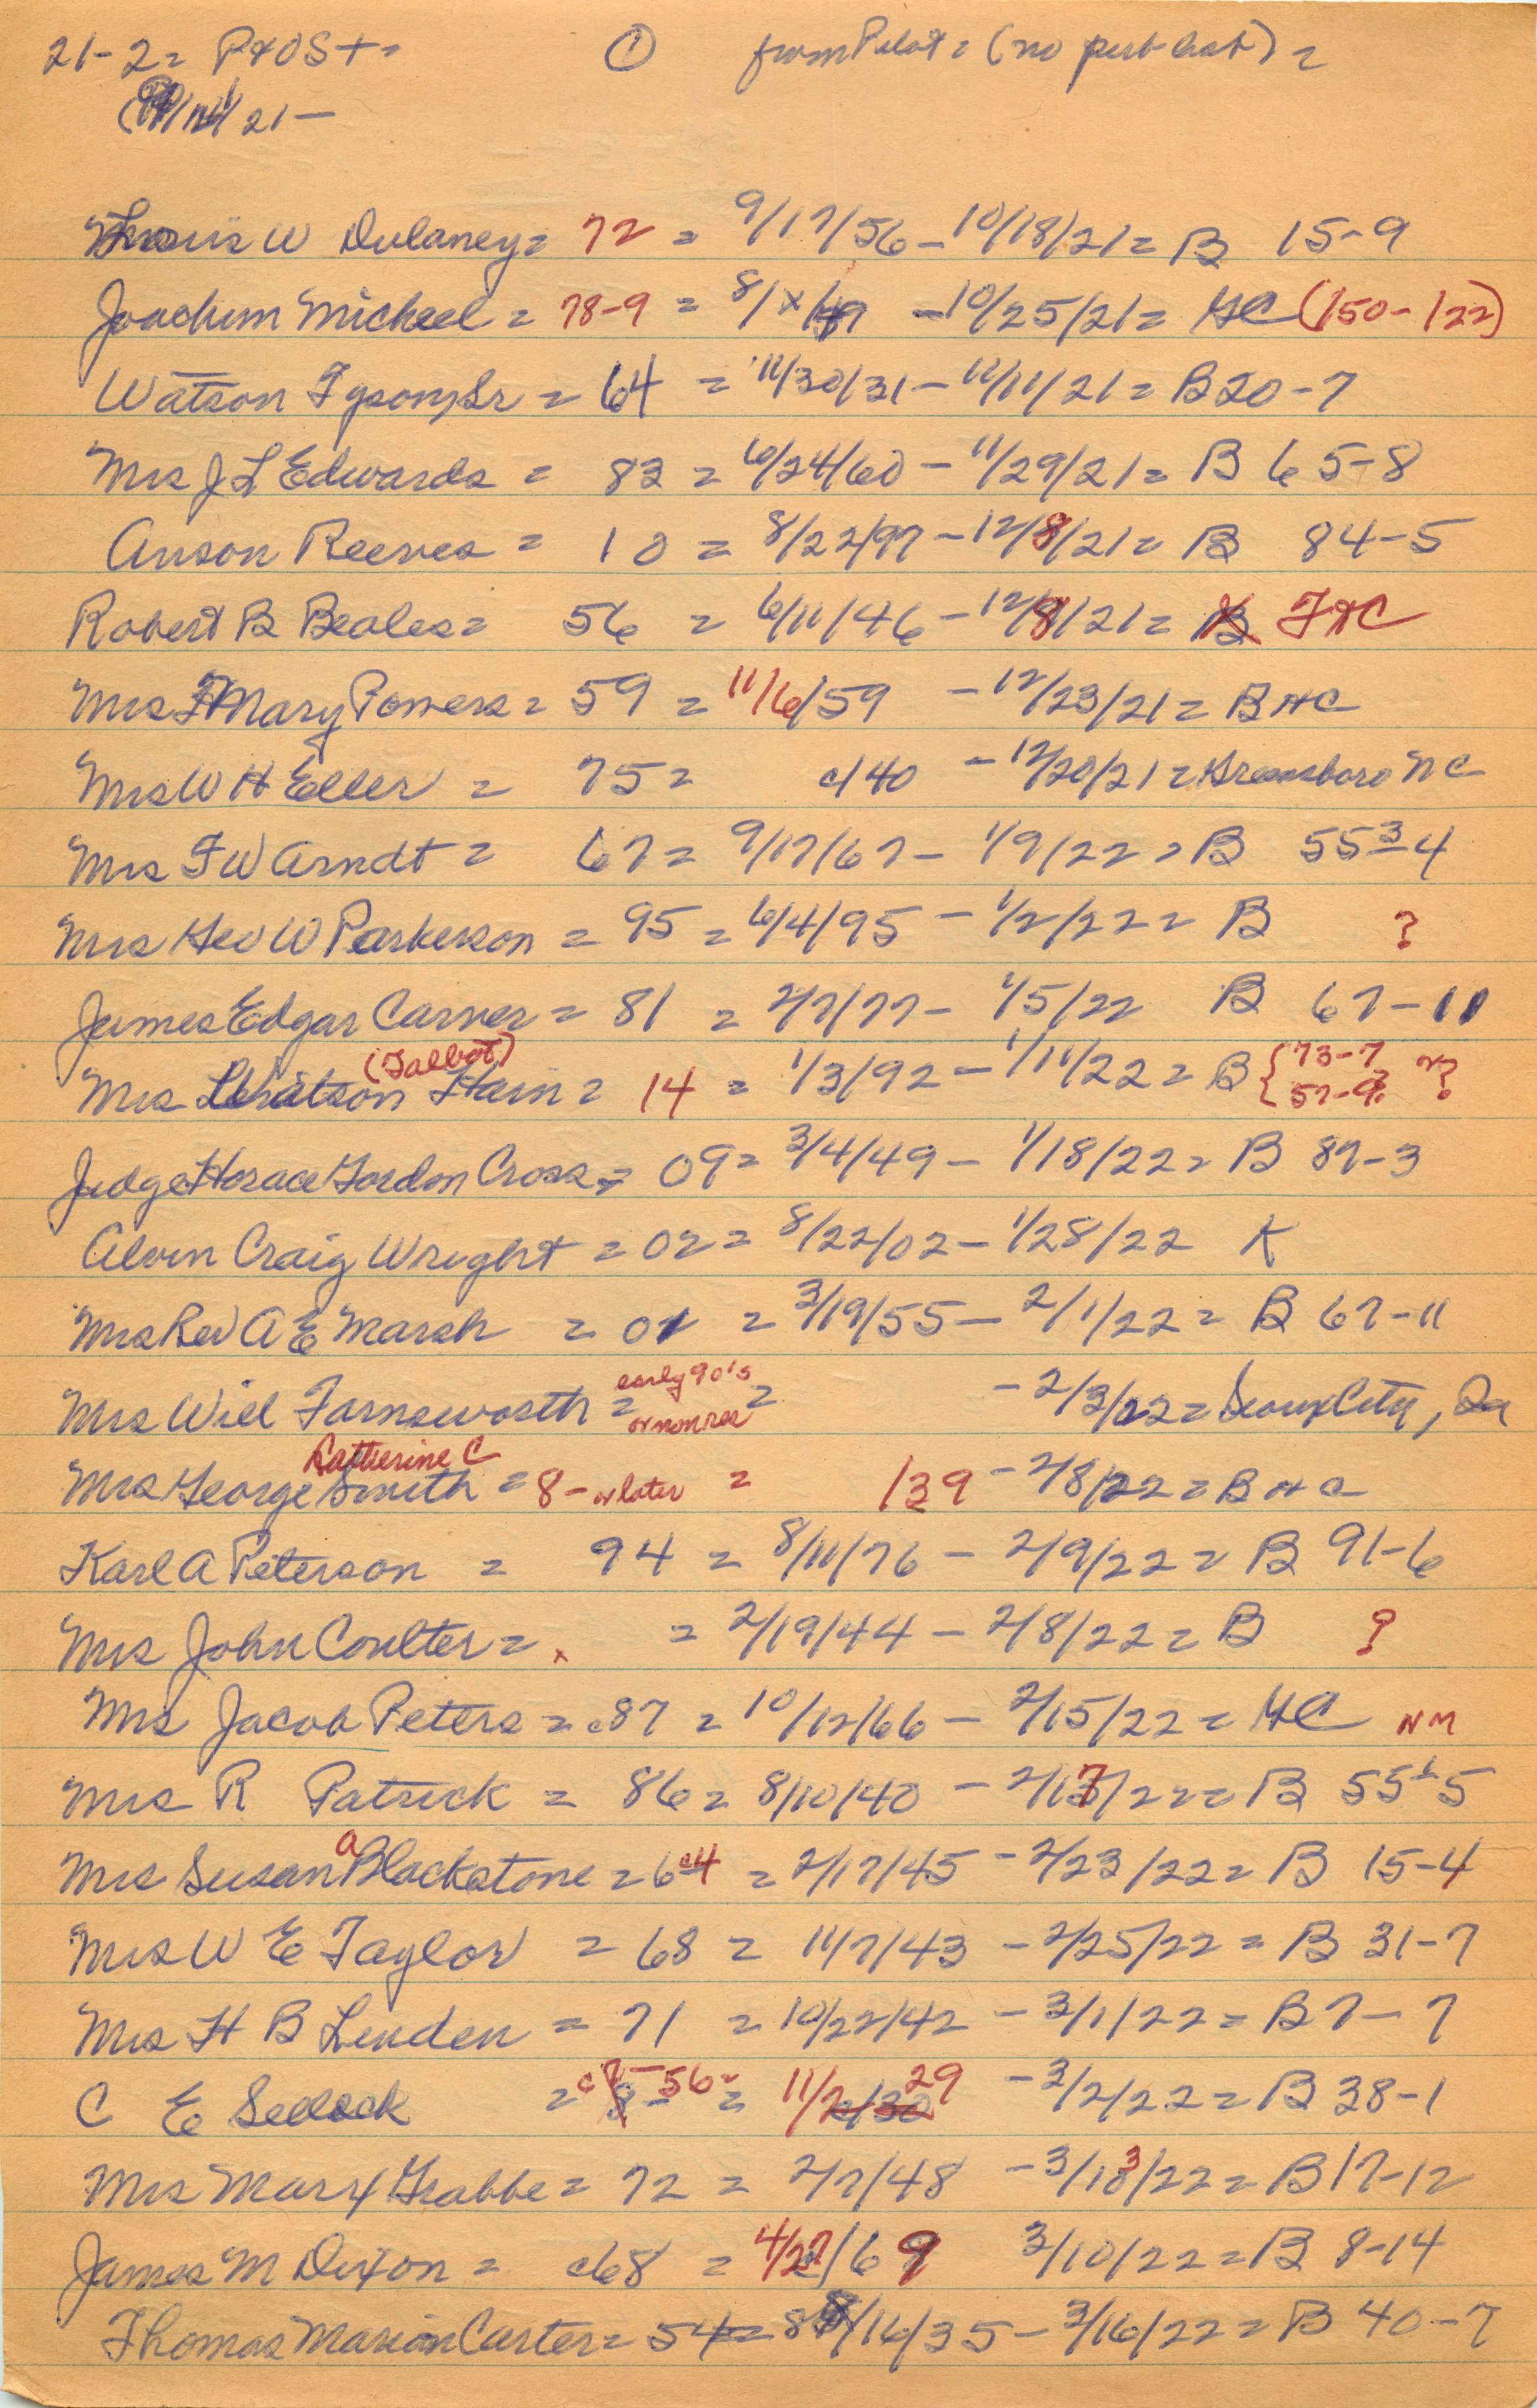 21-2= P+OST= ① from Pilot = (no publ-)=
21-
W Dulaney= 72 = 9/17/56-10/18/21= B 15-9
Joachim Michael = 78-9 = 8/x/49 -10/25/21= GC (150-122)
Watson Tyson, Sr = 64 = 11/30/31-11/11/21= B 20-7
Mrs J L Edwards = 83 = 6/24/60-11/29/21= B 65-8
Anson Reeves = 10 = 8/22/97-12/8/21= B 84-5
Robert B Beales= 56 = 6/11/46-12/8/21= B F+C
Mrs Mary Powers = 59 = 11/6/59 -12/23/21= B HC
Mrs W H Eller = 75= c/40 -12/20/21=Greensboro NC
Mrs F W Arndt = 67= 9/17/67- 1/9/22= B 55 3-4
Mrs Geo W Parkerson = 95 = 6/4/95-1/2/22= B ?
James Edgar Carver = 81 = 2/7/77- 1/5/22 B 67-11
(Talbot)
Mrs = 14 = 1/3/92-1/11/22= B { 73-7 or ?
57-9?
Judge Horace Gordon Cross = 09= 3/4/49- 1/18/22= B 87-3
Alvin Craig Wright = 02= 8/22/02-1/28/22 K
Mrs Rev A E Marsh = 01 = 3/19/55-2/1/22= B 67-11
Mrs Will Farnsworth = early 90's = -2/3/22=Sioux City, Ia
or non res
Katherine C
Mrs George Smith = 8- or later = /39 -2/8/22= B HC
Karl A Peterson = 94 = 8/11/76 - 2/9/22= B 91-6
Mrs John Coulter = x = 2/19/44 - 2/8/22= B ?
Mrs Jacob Peters = c87 = 10/12/66- 2/15/22= GC NM
Mrs R Patrick = 86= 8/10/40 - 2/17/22= B 55 1/2-5
Mrs Susan A Blackstone = 64 = 2/17/45 -2/23/22= B 15-4
Mrs W E Taylor = 68 = 11/7/43 -2/25/22= B 31-7
Mrs H B Linden = 71 = 10/22/42 -3/1/22= B 7-7
C E Sellock = c 8- 56 = 11/2/30 29 -3/2/22= B 38-1
Mrs Mary Grabbe = 72 = 2/7/48 -3/13/22= B 17-12
James M Dixon = c68 = 4/27/69 3/10/22= B 8-14
Thomas Marion Carter= 54= 8/16/35-3/16/22= B 40-7